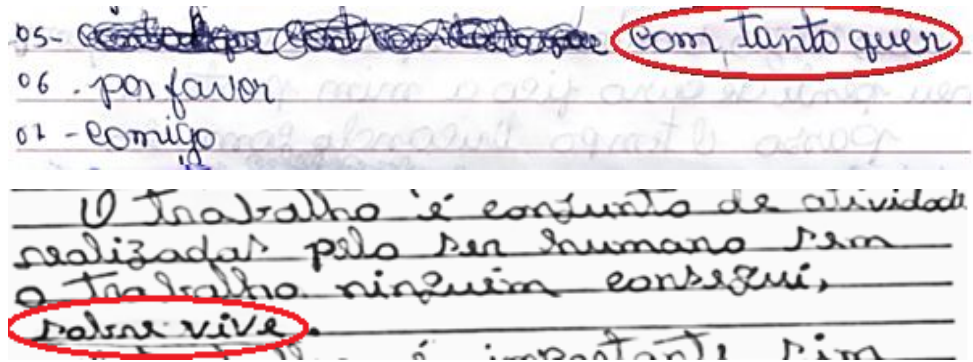 05- com tanto quer
06 - por favor
07 - comigo
O trabalho é conjunto de atividade
realizadas pelo ser humano sem
o trabalho ninguém conseguí,
sobre vive.
é importante sim